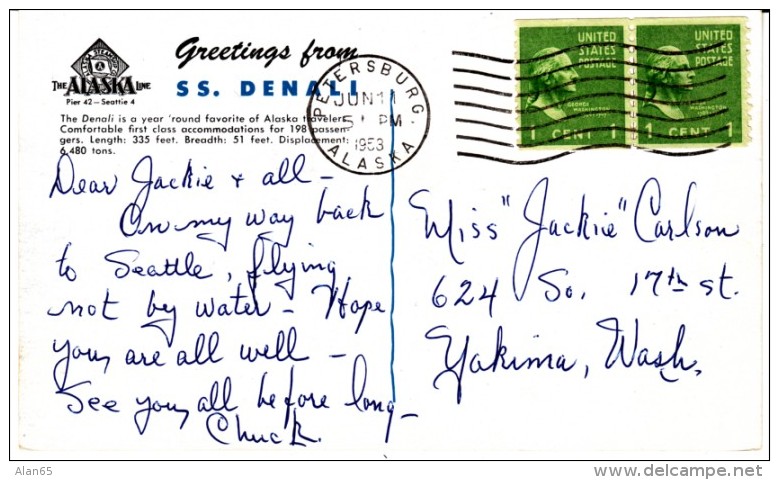 Greetings from
THE ALASKA LINE
SS. DENALI
Pier 42—Seattle 4
The Denali is a year 'round favorite of Alaska travelers.
Comfortable first class accommodations for 198 passen-
gers. Length: 335 feet. Breadth: 51 feet. Displacement:
6,480 tons.
PETERSBURG
JUN 11
5 PM
1953
ALASKA
UNITED
STATES
POSTAGE
GEORGE
WASHINGTON
1 CENT 1
UNITED
STATES
POSTAGE
GEORGE
WASHINGTON
1 CENT 1
Dear Jackie & all –
On my way back
to Seattle, flying
not by water – Hope
you are all well –
See you all before long –
Chuck.
Miss "Jackie" Carlson
624 So. 17th st.
Yakima, Wash.
Alan65
delcampe.net